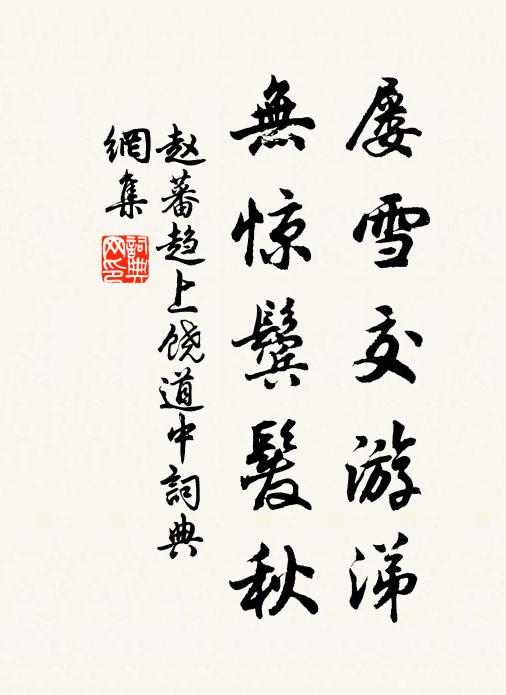 屡雪交游涕
無惊鬓髮秋
赵蕃趋上饶道中詞典
網集
詞典网印